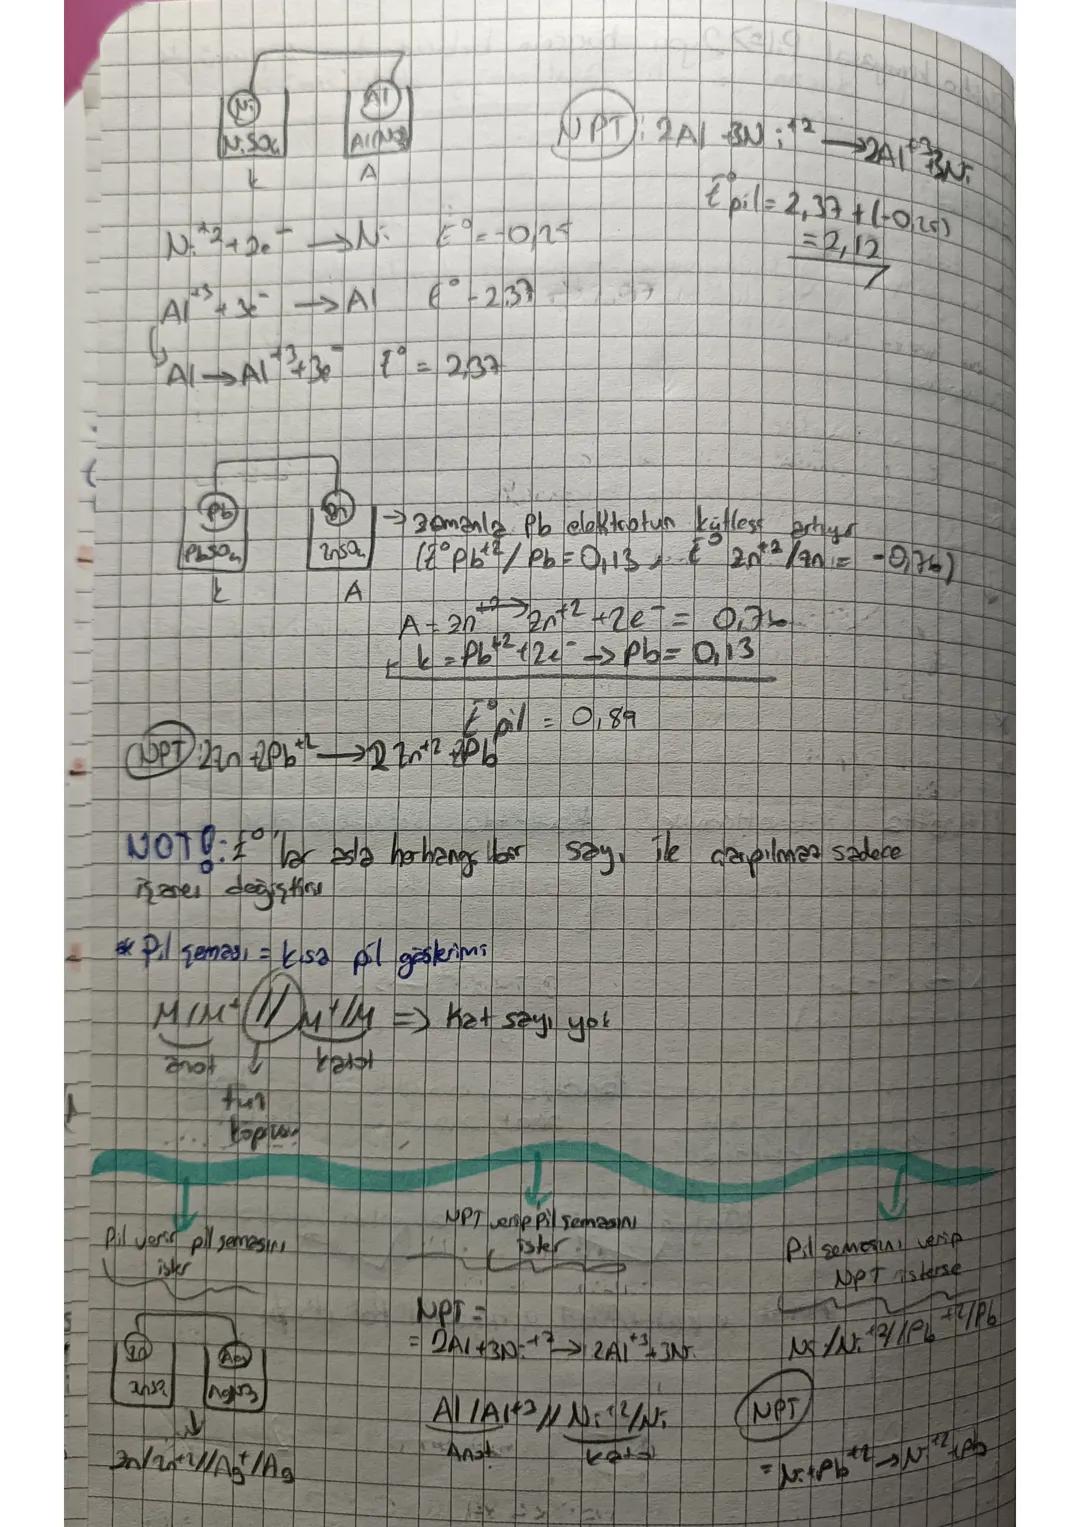 Ni Al
NiSO4 Al(NO3)
k A
NPT: 2Al 3Ni+2 → 2Al+3 3Ni
E°pil = 2,37 + (-0,25)
= 2,12
Ni+2 + 2e- → Ni E° = -0,25
Al+3 + 3e- → Al E° -2,37
Al → Al+3 + 3e- E° = 2,37
Pb Zn
PbSO4 ZnSO4
k A
→ zamanla Pb elektrotun kütlesi artıyor
(E° Pb+2/Pb = 0,13, E° Zn+2/Zn = -0,76)
A = Zn+2 → Zn+2 + 2e- = 0,76
+ k = Pb+2 + 2e- → Pb = 0,13
E°pil = 0,89
NPT: 2Zn + 2Pb+2 → 2Zn+2 + 2Pb
NOT!: E°'lar asla herhangi bir sayı ile çarpılmaz sadece
işaret değiştirir
* Pil şeması = kısa pil gösterimi
M/M+ // M+/M => Kat sayı yok
anot katot
tuz
köprüsü
Pil verir pil şemasını
ister
Zn Ag
AgNO3
Zn/Zn+2//Ag+/Ag
NPT verip Pil şemasını
ister
NPT =
= 2Al + 3Ni+2 → 2Al+3 + 3Ni
Al/Al+3//Ni+2/Ni
Anot katot
Pil şemasını verip
NPT isterse
Ni/Ni+2//Pb+2/Pb
NPT
= Ni + Pb+2 → Ni+2 + Pb